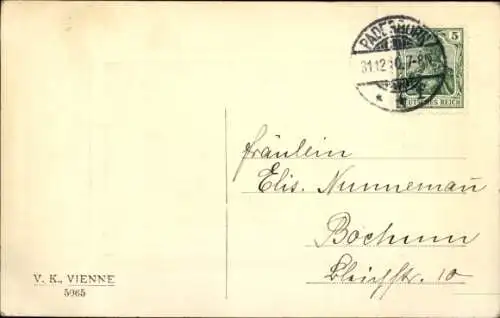 PADERBORN
5
31.12.10.7-8N.
DEUTSCHES REICH
Fräulein
Elis. Nunnemann
Bochum
Bleichstr. 10
V. K., VIENNE
5065